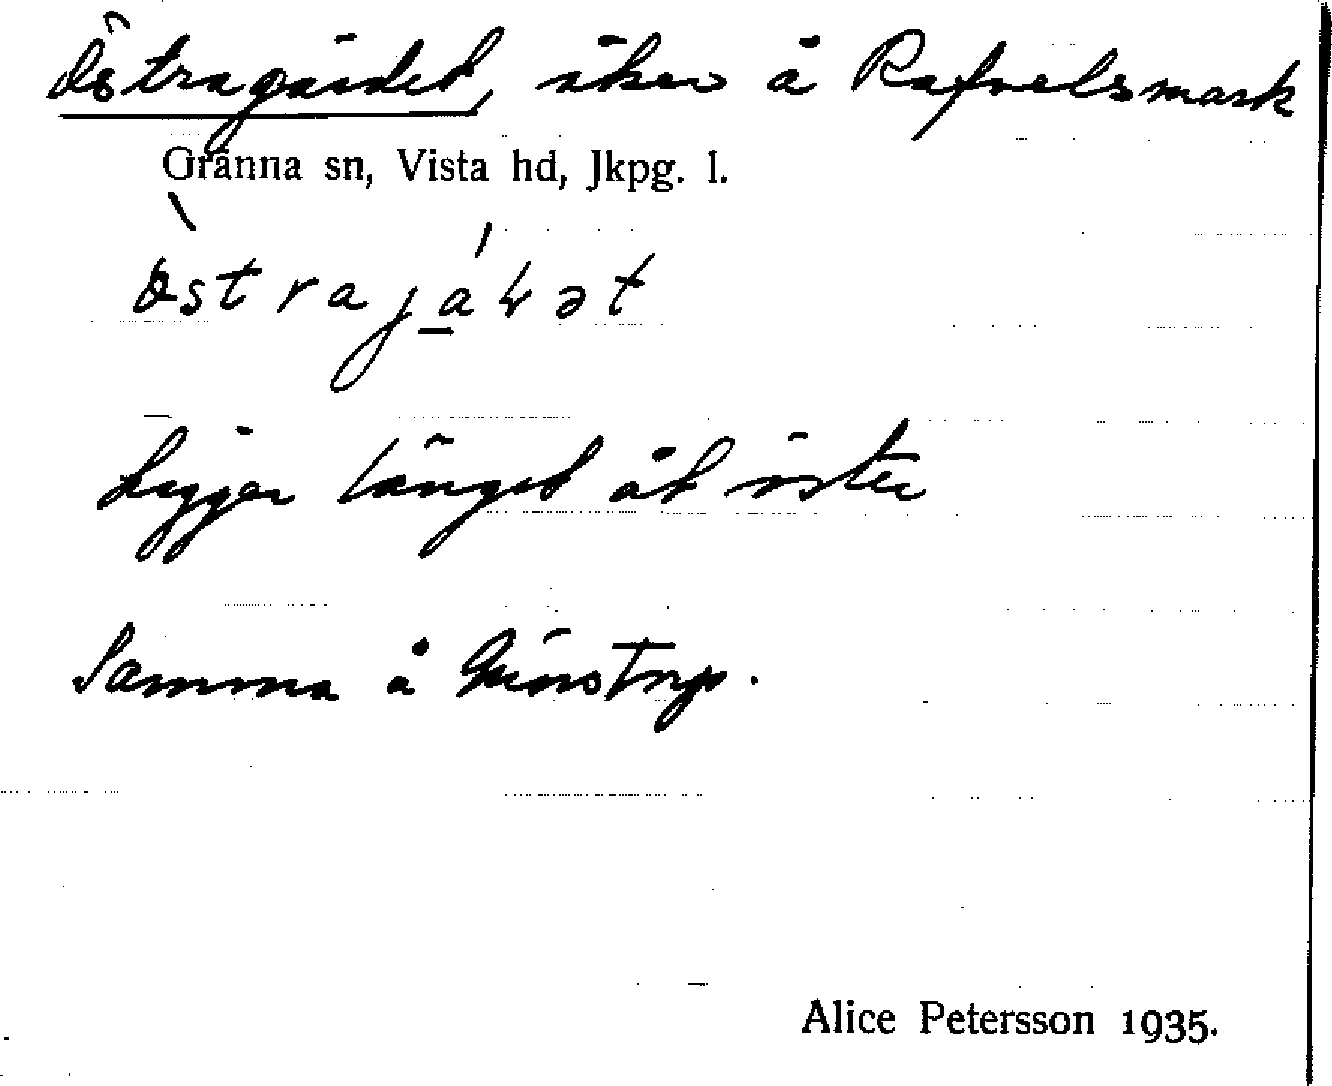 Östragärdet, åker å Rafvelsmark
Gränna sn, Vista hd, Jkpg. l.
Ligger längst åt öster
Samma å
Alice Petersson 1935.